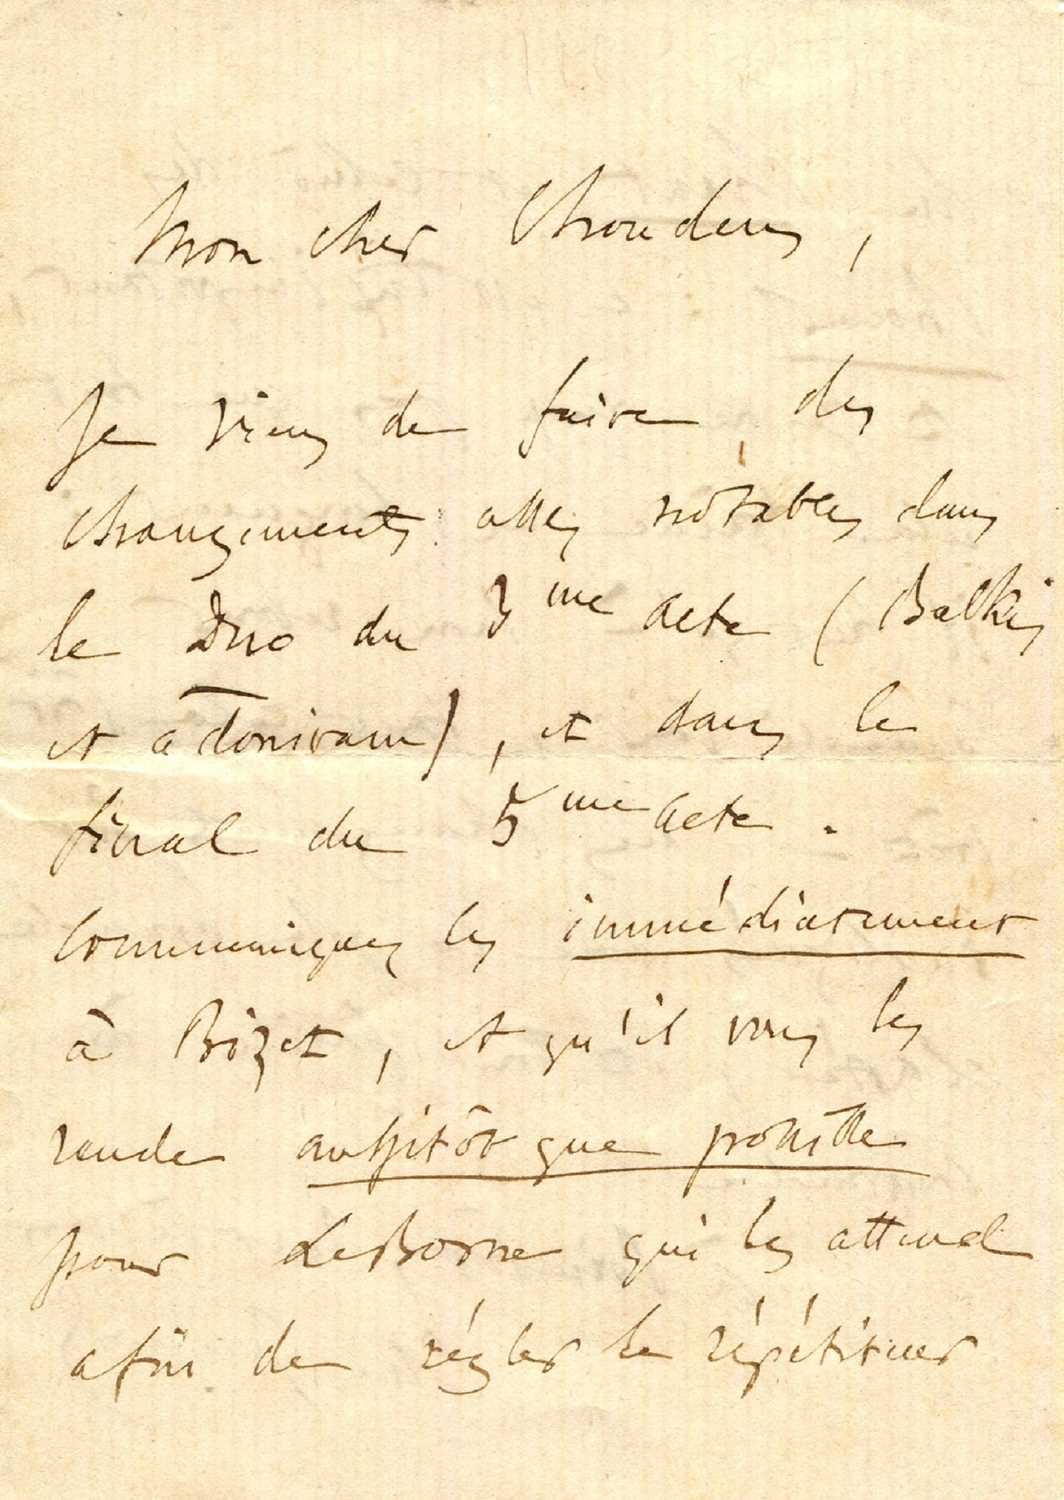 Mon cher Choudens,
Je viens de faire des
changements assez notables dans
le Duo du 3me acte (Balkis
et Adoniram), et dans le
final du 5me acte.
Communiquez les immédiatement
à Bizet, et qu'il vous les
rende aussitôt que possible
pour LeBorne qui les attend
afin de régler le répétiteur